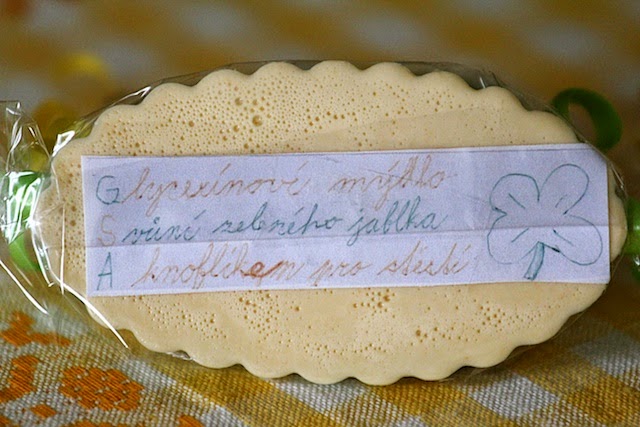 Glycerínové mýdlo
S vůní zeleného jablka
A knoflíkem pro štěstí